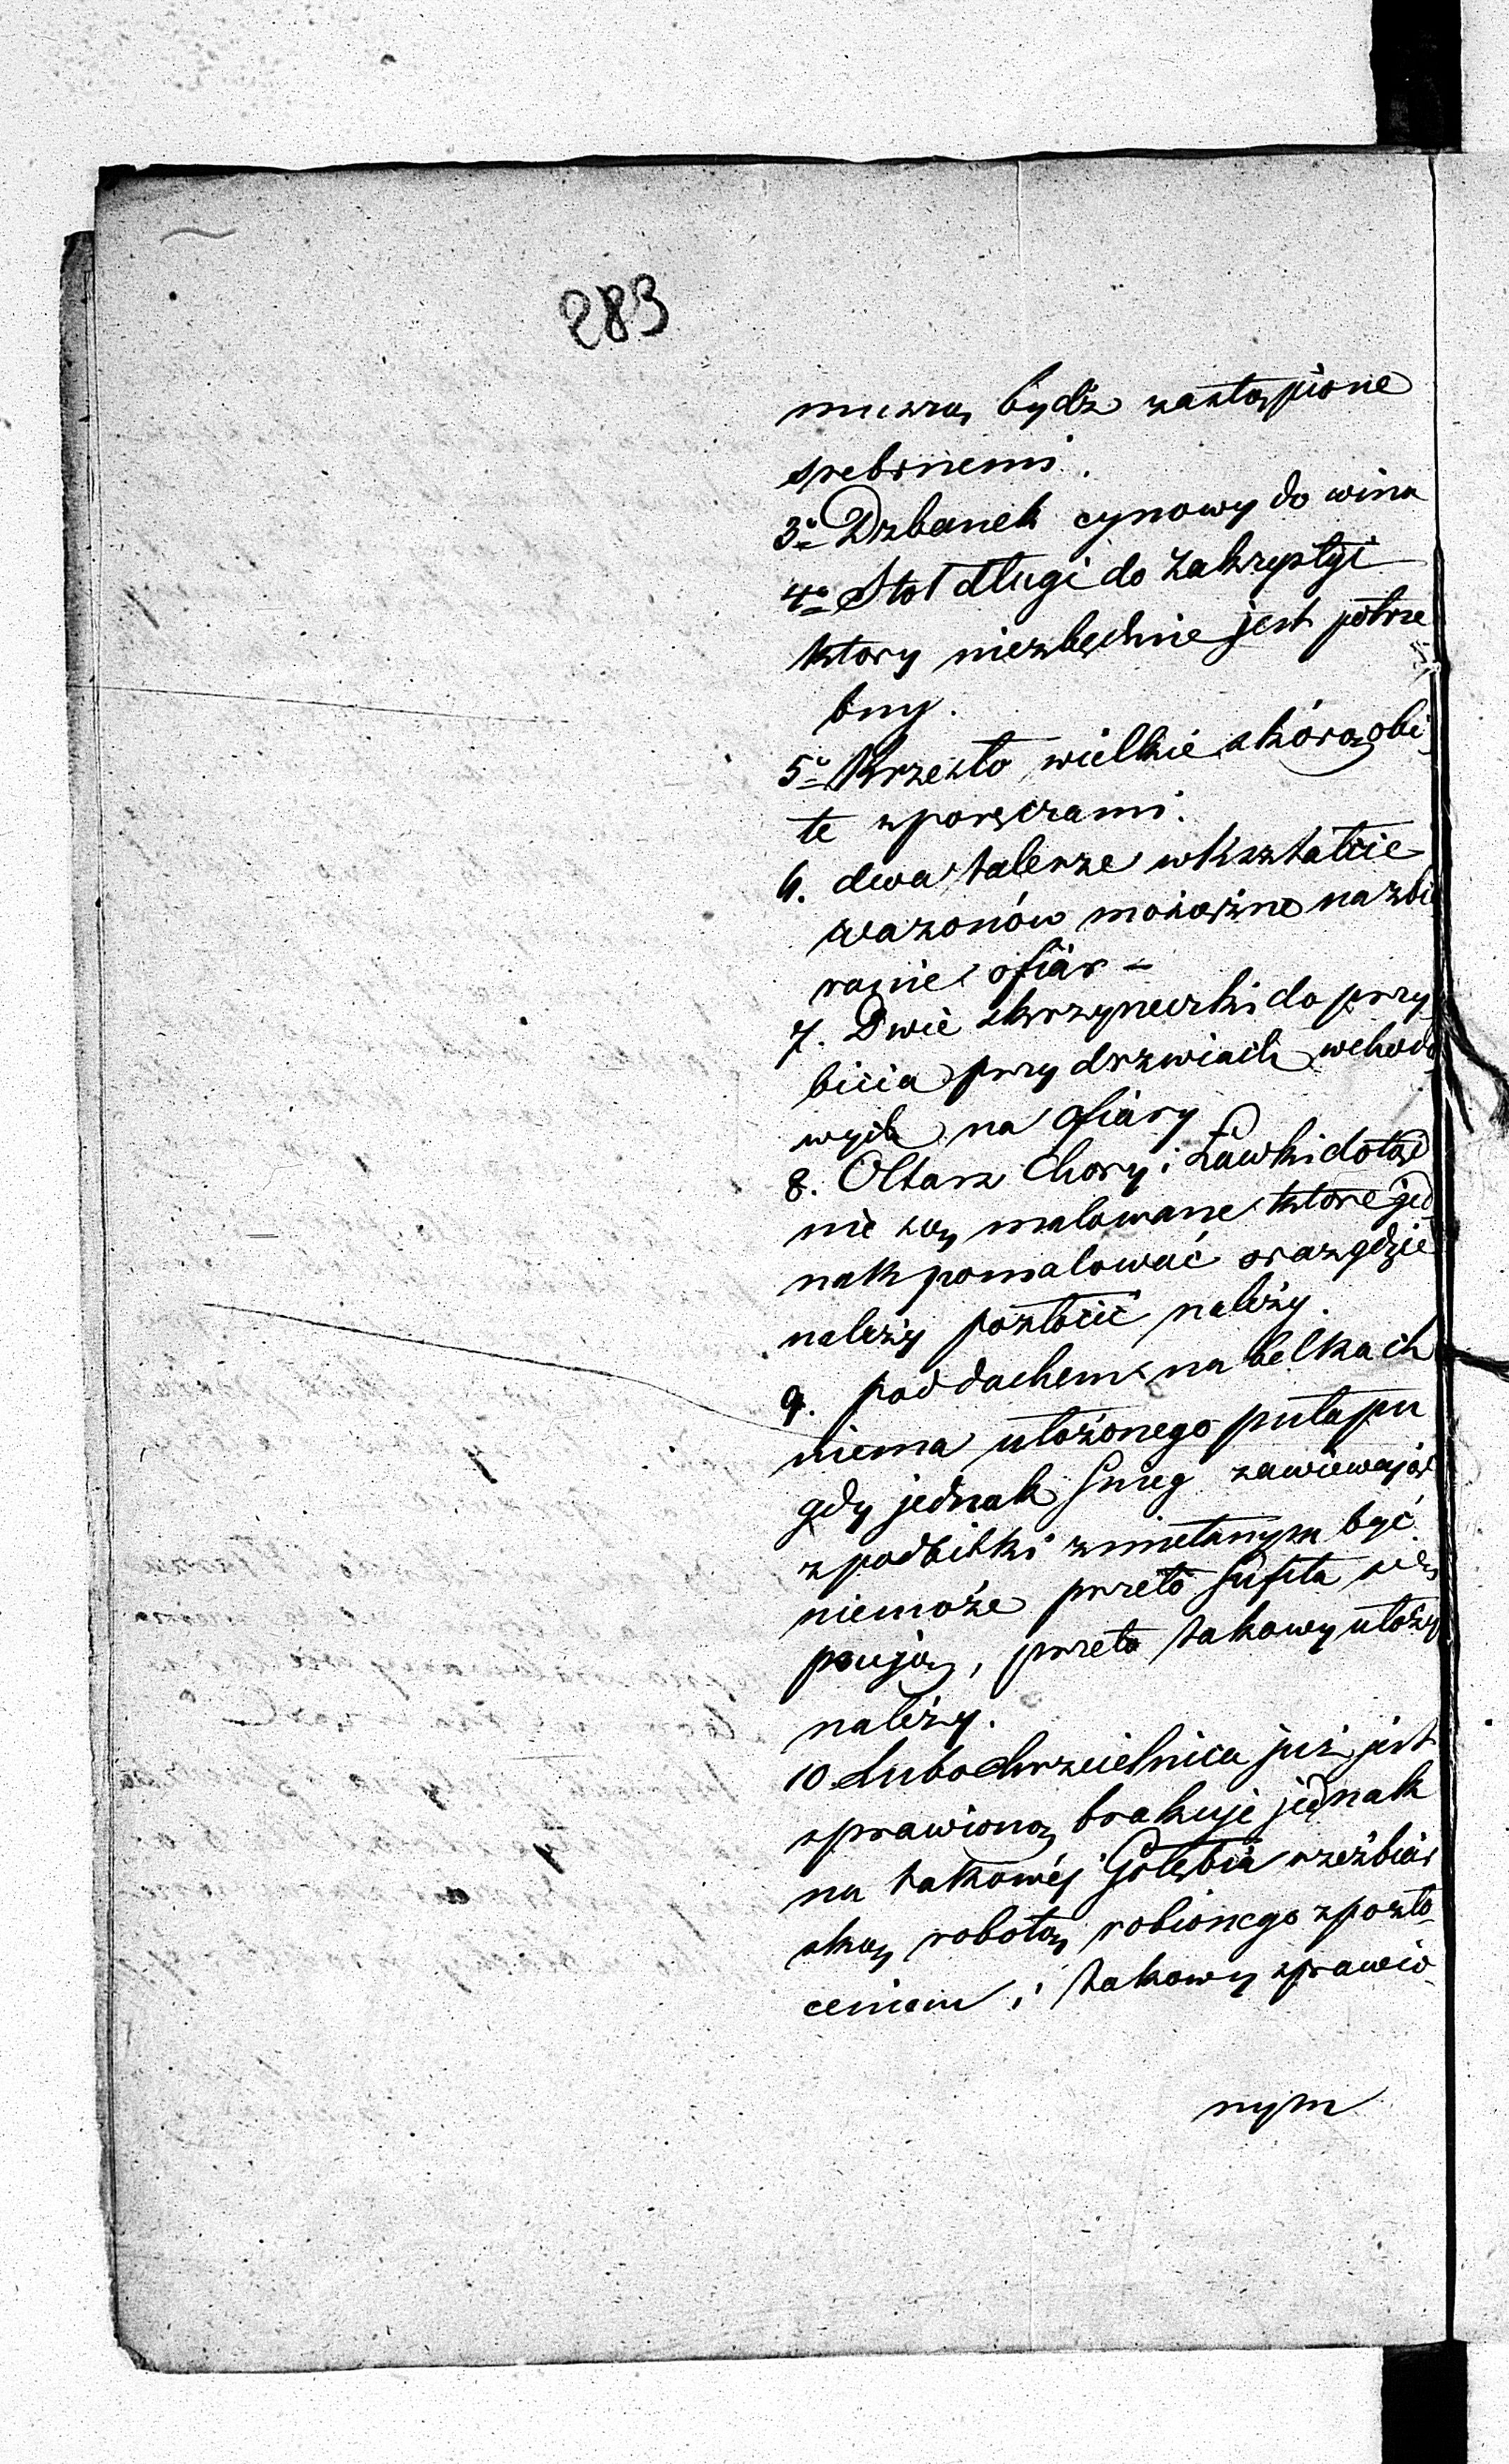 283
muszą bydź zastąpione
srebrnemi.
3o Dzbanek cynowy do wina
4o Stoł długi do Zakrystyi
ktory niezbędnie jest potrze
bny.
5o Krzesło wielkie skórą obi
te z poręczami.
6. dwa talerze w kształcie
wazonów mosiężne na zbie
ranie ofiar –
7. Dwie skrzyneczki do przy
bicia przy drzwiach wchodo
wych na ofiary
8. Ołtarz Chory i Ławki dotąd
nie są malowane ktore jed
nak pomalować oraz gdzie
należy pozłocić należy.
9. pod dachem na belkach
niema ułożonego pułapu
gdy jednak śnieg zawiewając
z podbitki zmietanym być
niemoże przeto sufita
psują, przeto takowy ułożyć
należy.
10. Lubo chrzcielnica już jest
sprawioną brakuje jednak
na takowéj Gołębia rzeźbiar
ską robotą robionego z pozło
ceniem, i takowy sprawio
nym